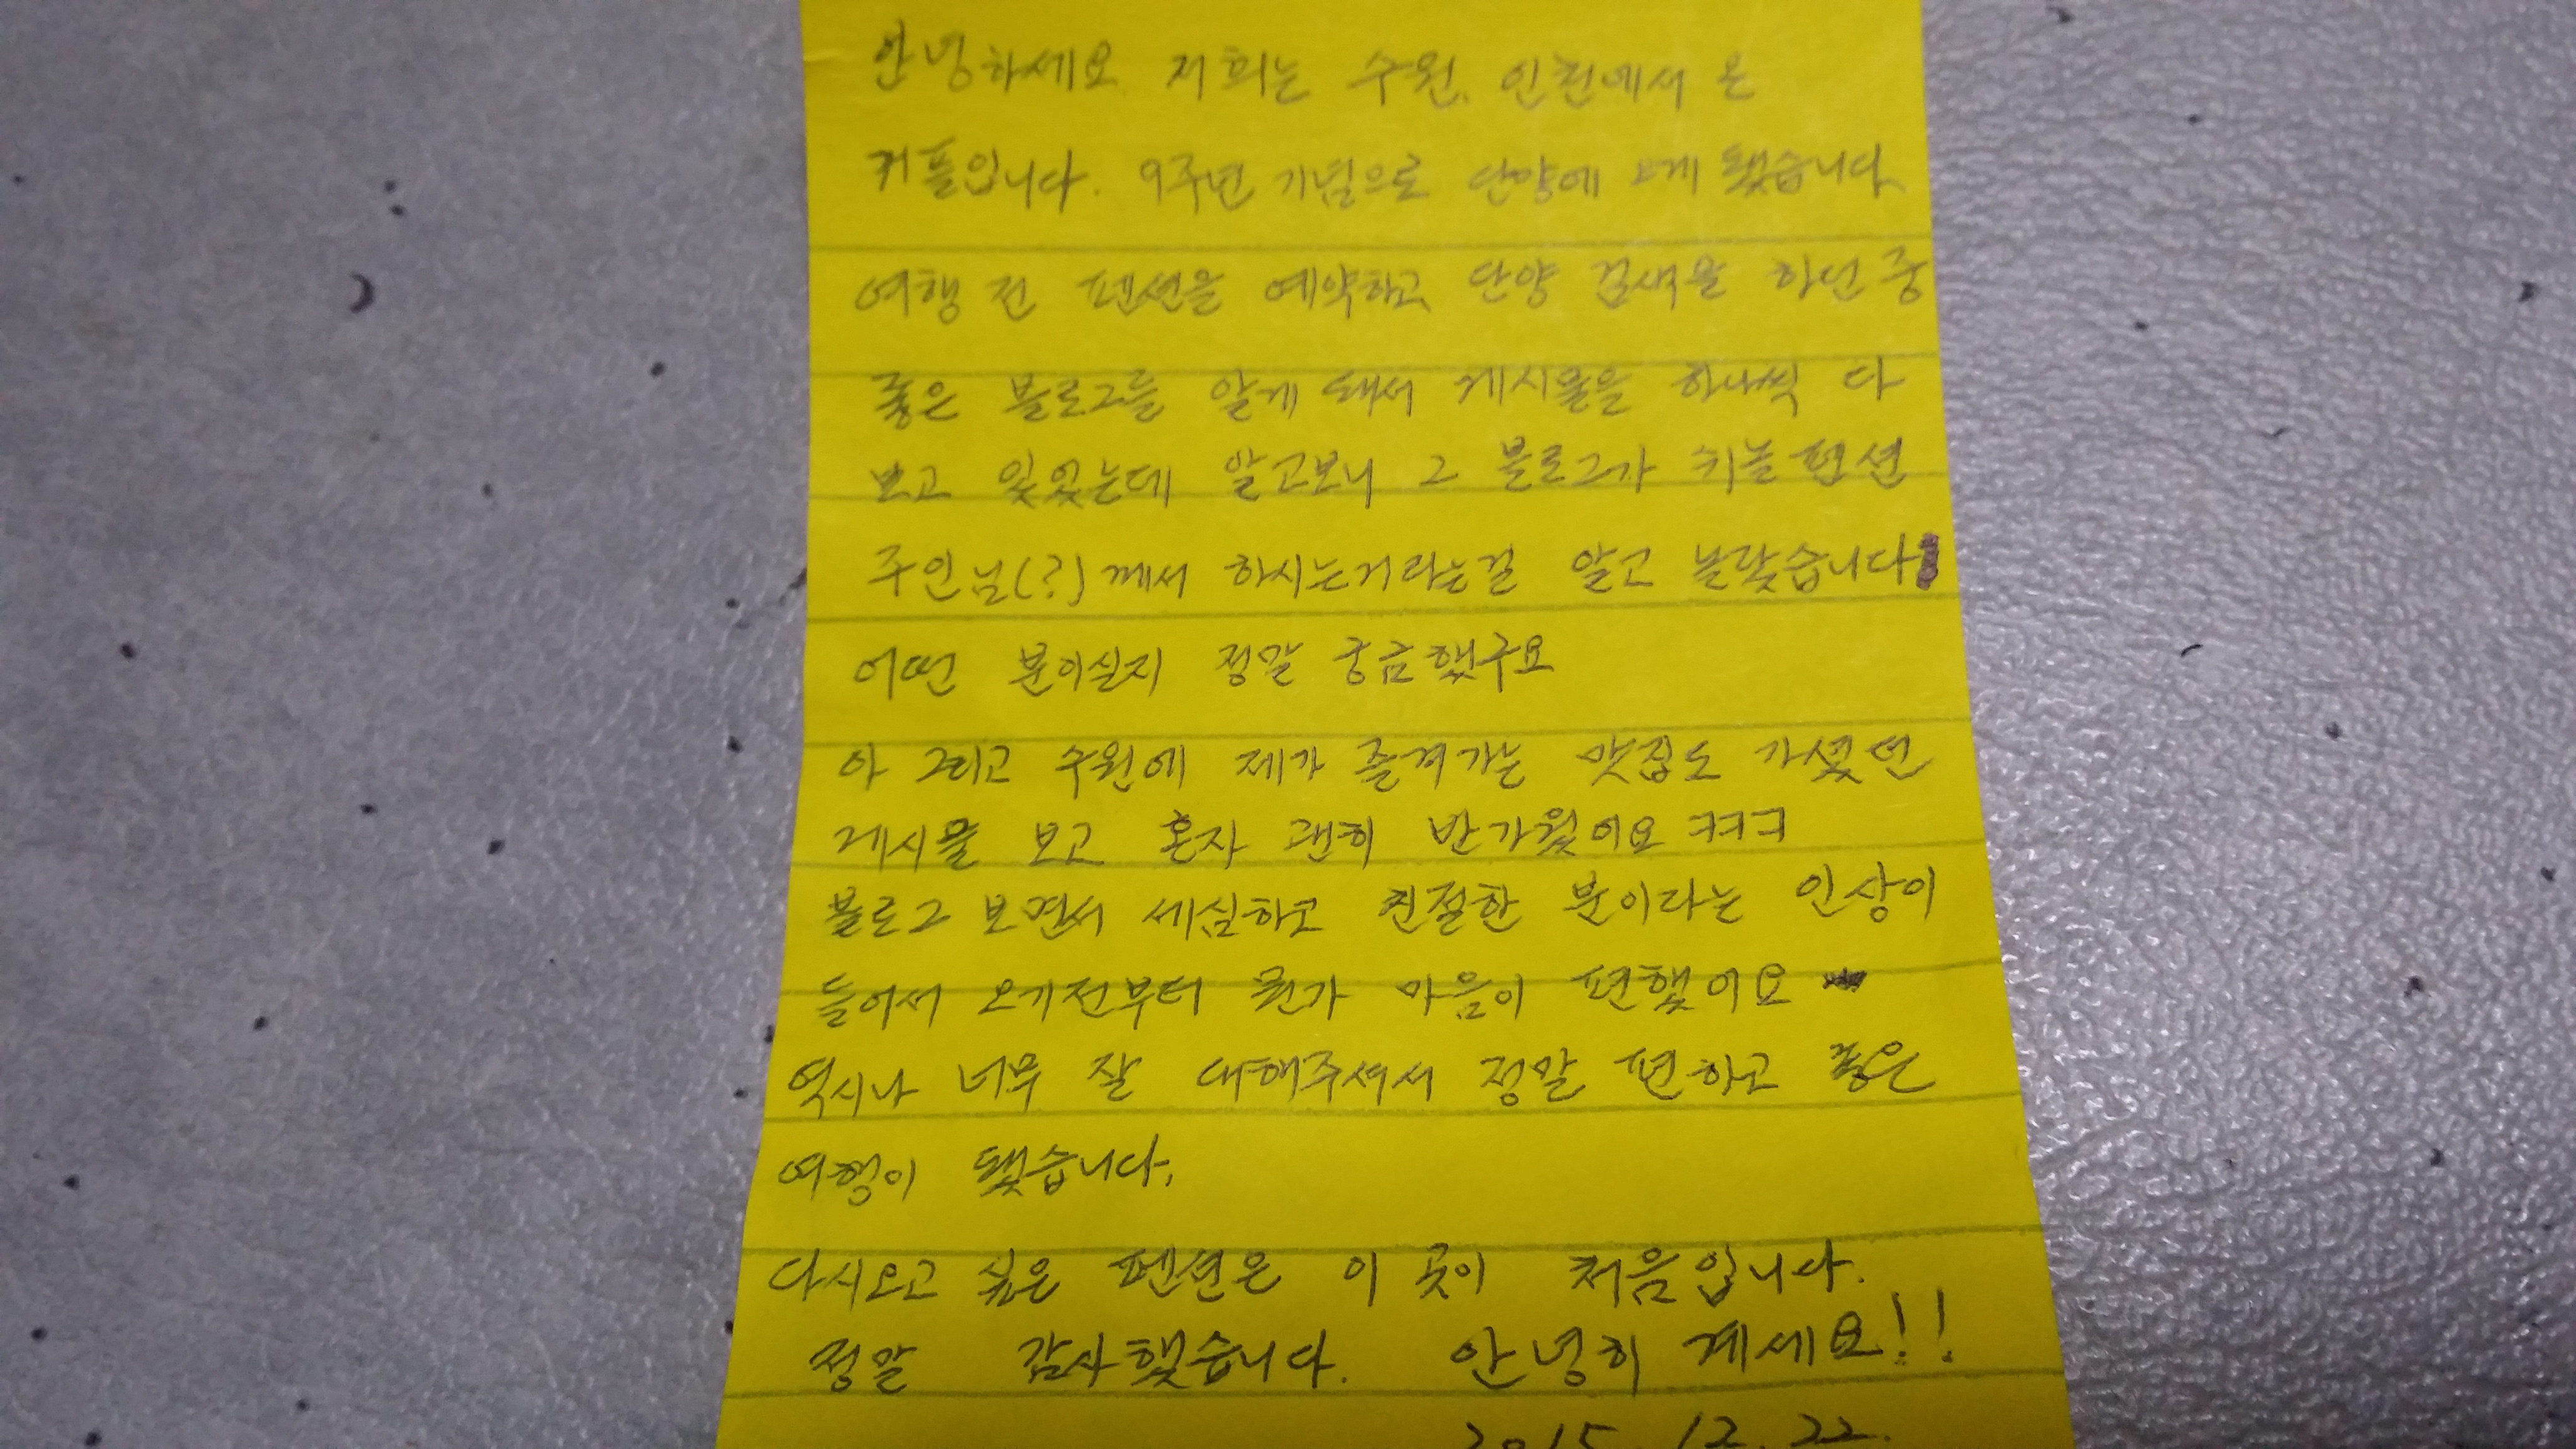 안녕하세요 저희는 수원, 인천에서 온
커플입니다. 9주년 기념으로 단양에 오게 됐습니다.
여행 전 펜션을 예약하고 단양 검색을 하던 중
좋은 블로그를 알게 돼서 게시물을 하나씩 다
보고 있었는데 알고보니 그 블로그가 하늘펜션
주인님(?)께서 하시는거라는걸 알고 놀랐습니다
어떤 분이실지 정말 궁금했구요
아 그리고 수원에 제가 즐겨가는 맛집도 가셨던
게시물 보고 혼자 괜히 반가웠어요 ㅋㅋㅋ
블로그 보면서 세심하고 친절한 분이라는 인상이
들어서 오기전부터 뭔가 마음이 편했어요
역시나 너무 잘 대해주셔서 정말 편하고 좋은
여행이 됐습니다.
다시오고 싶은 펜션은 이 곳이 처음입니다.
정말 감사했습니다. 안녕히 계세요!!
2015. 12. 22.